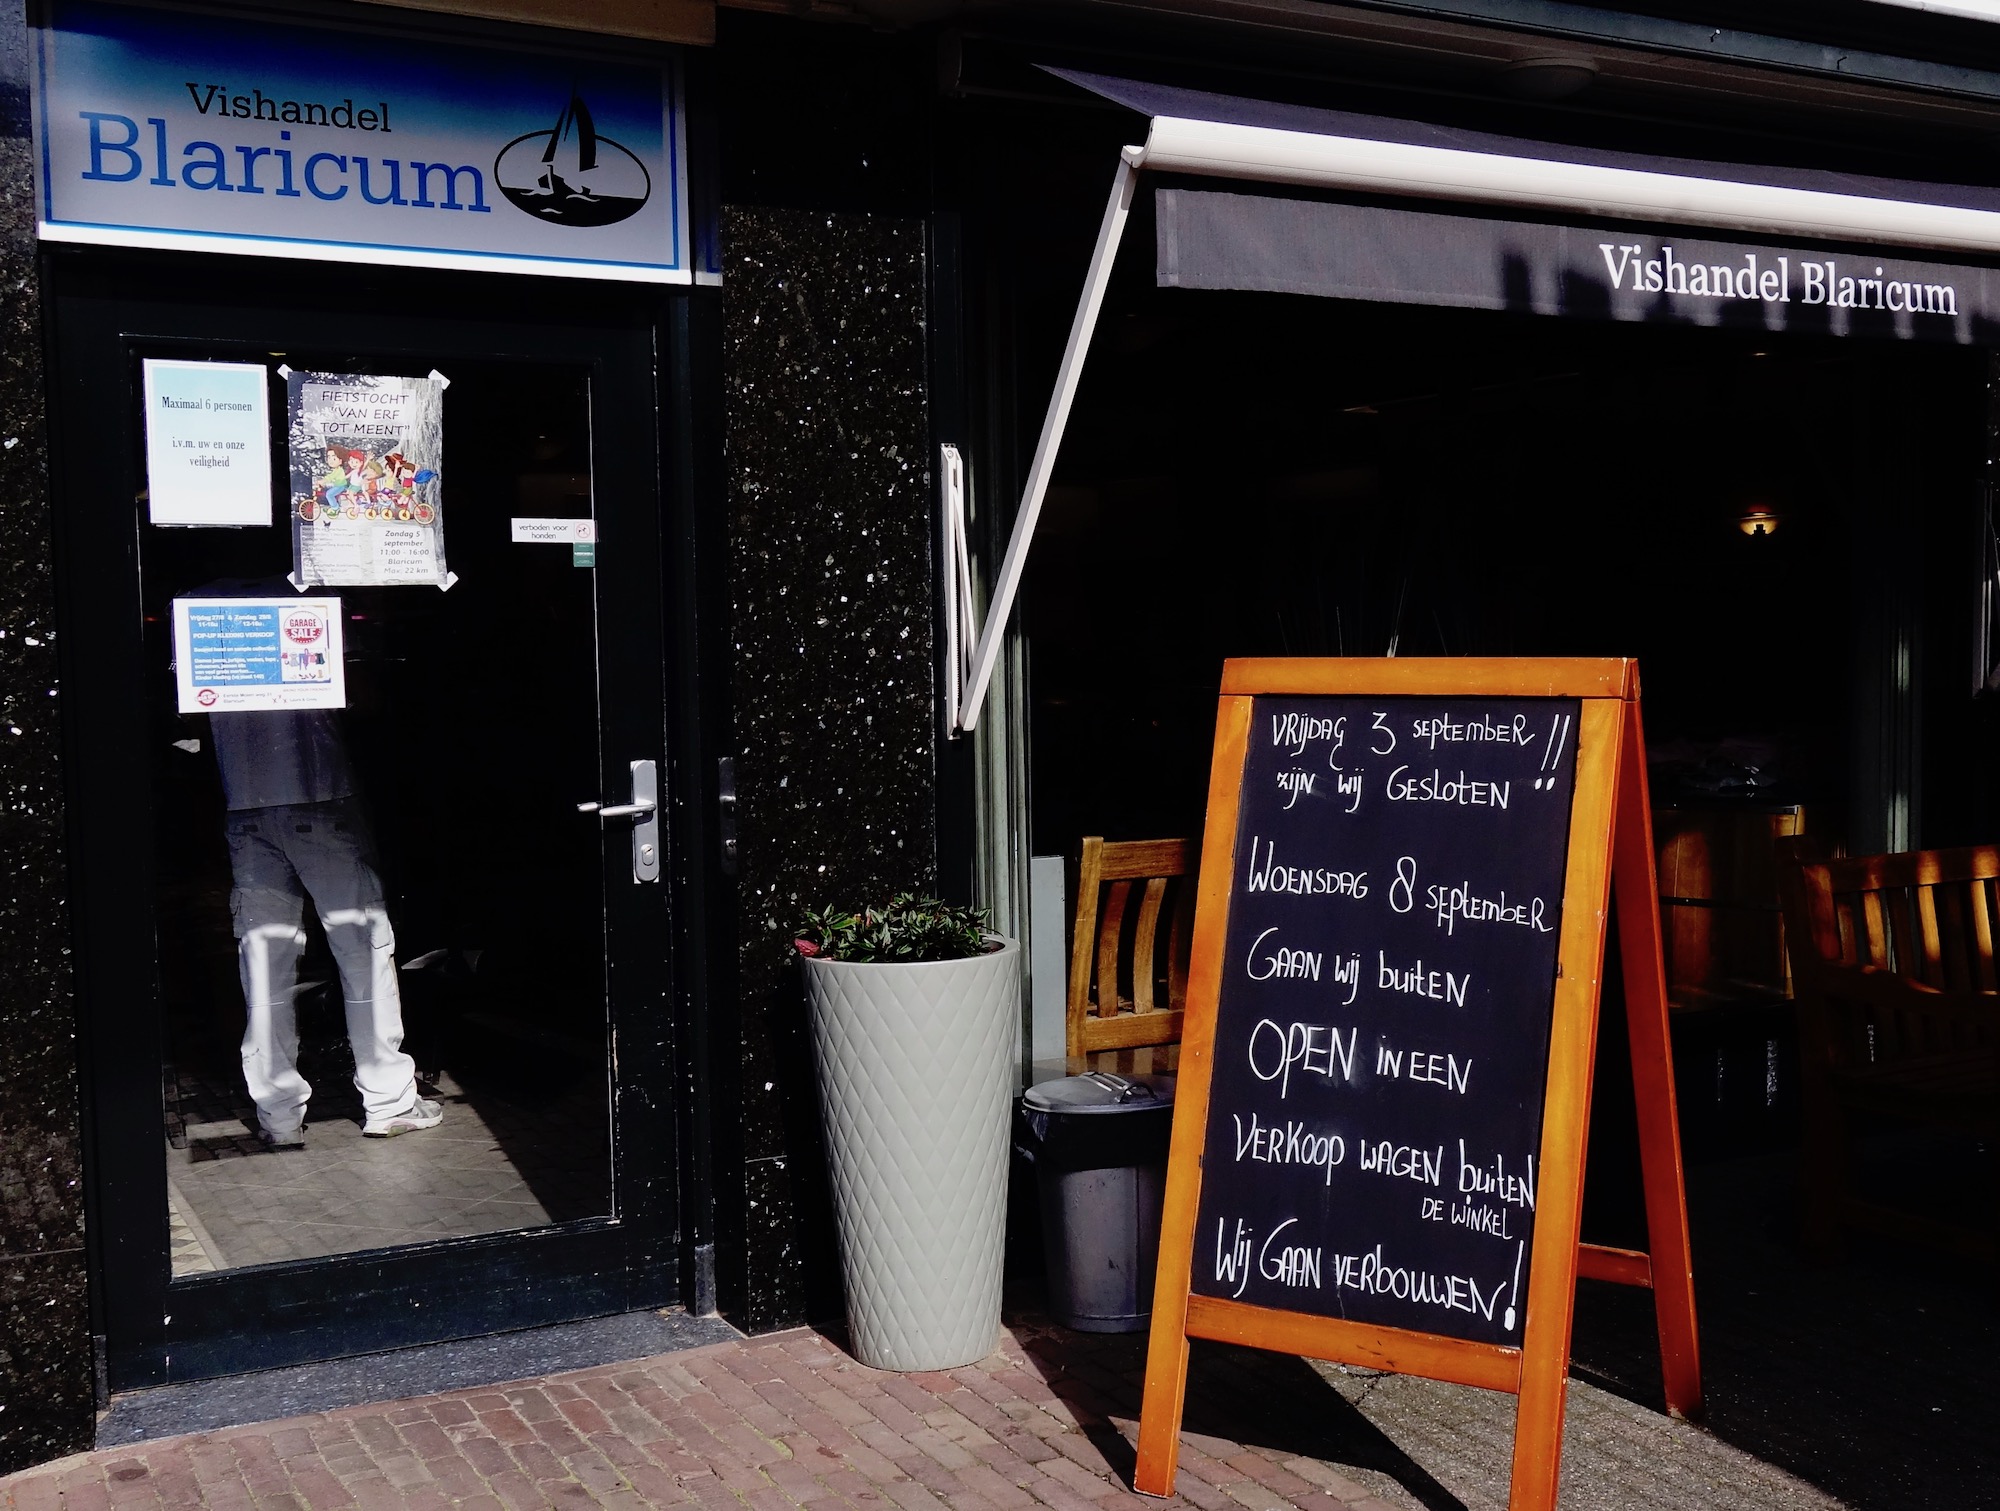 Vishandel
Blaricum
Vishandel Blaricum
Maximaal 6 personen
i.v.m. uw en onze
veiligheid
FIETSTOCHT
"VAN ERF
TOT MEENT"
Zondag 5
september
11:00 - 16:00
Blaricum
Max. 22 km
verboden voor
honden
Vrijdag 27/8 & Zondag 29/8
11-16u 12-16u
POP-UP KLEDING VERKOOP
GARAGE
SALE
Blaricum
VRIJDAG 3 SEPTEMBER !!
ZIJN WIJ GESLOTEN
WOENSDAG 8 SEPTEMBER
GAAN WIJ buitEN
OPEN iN EEN
VERKOOP WAGEN buitEN
DE WiNKEL
WIJ GAAN VERBOUWEN!